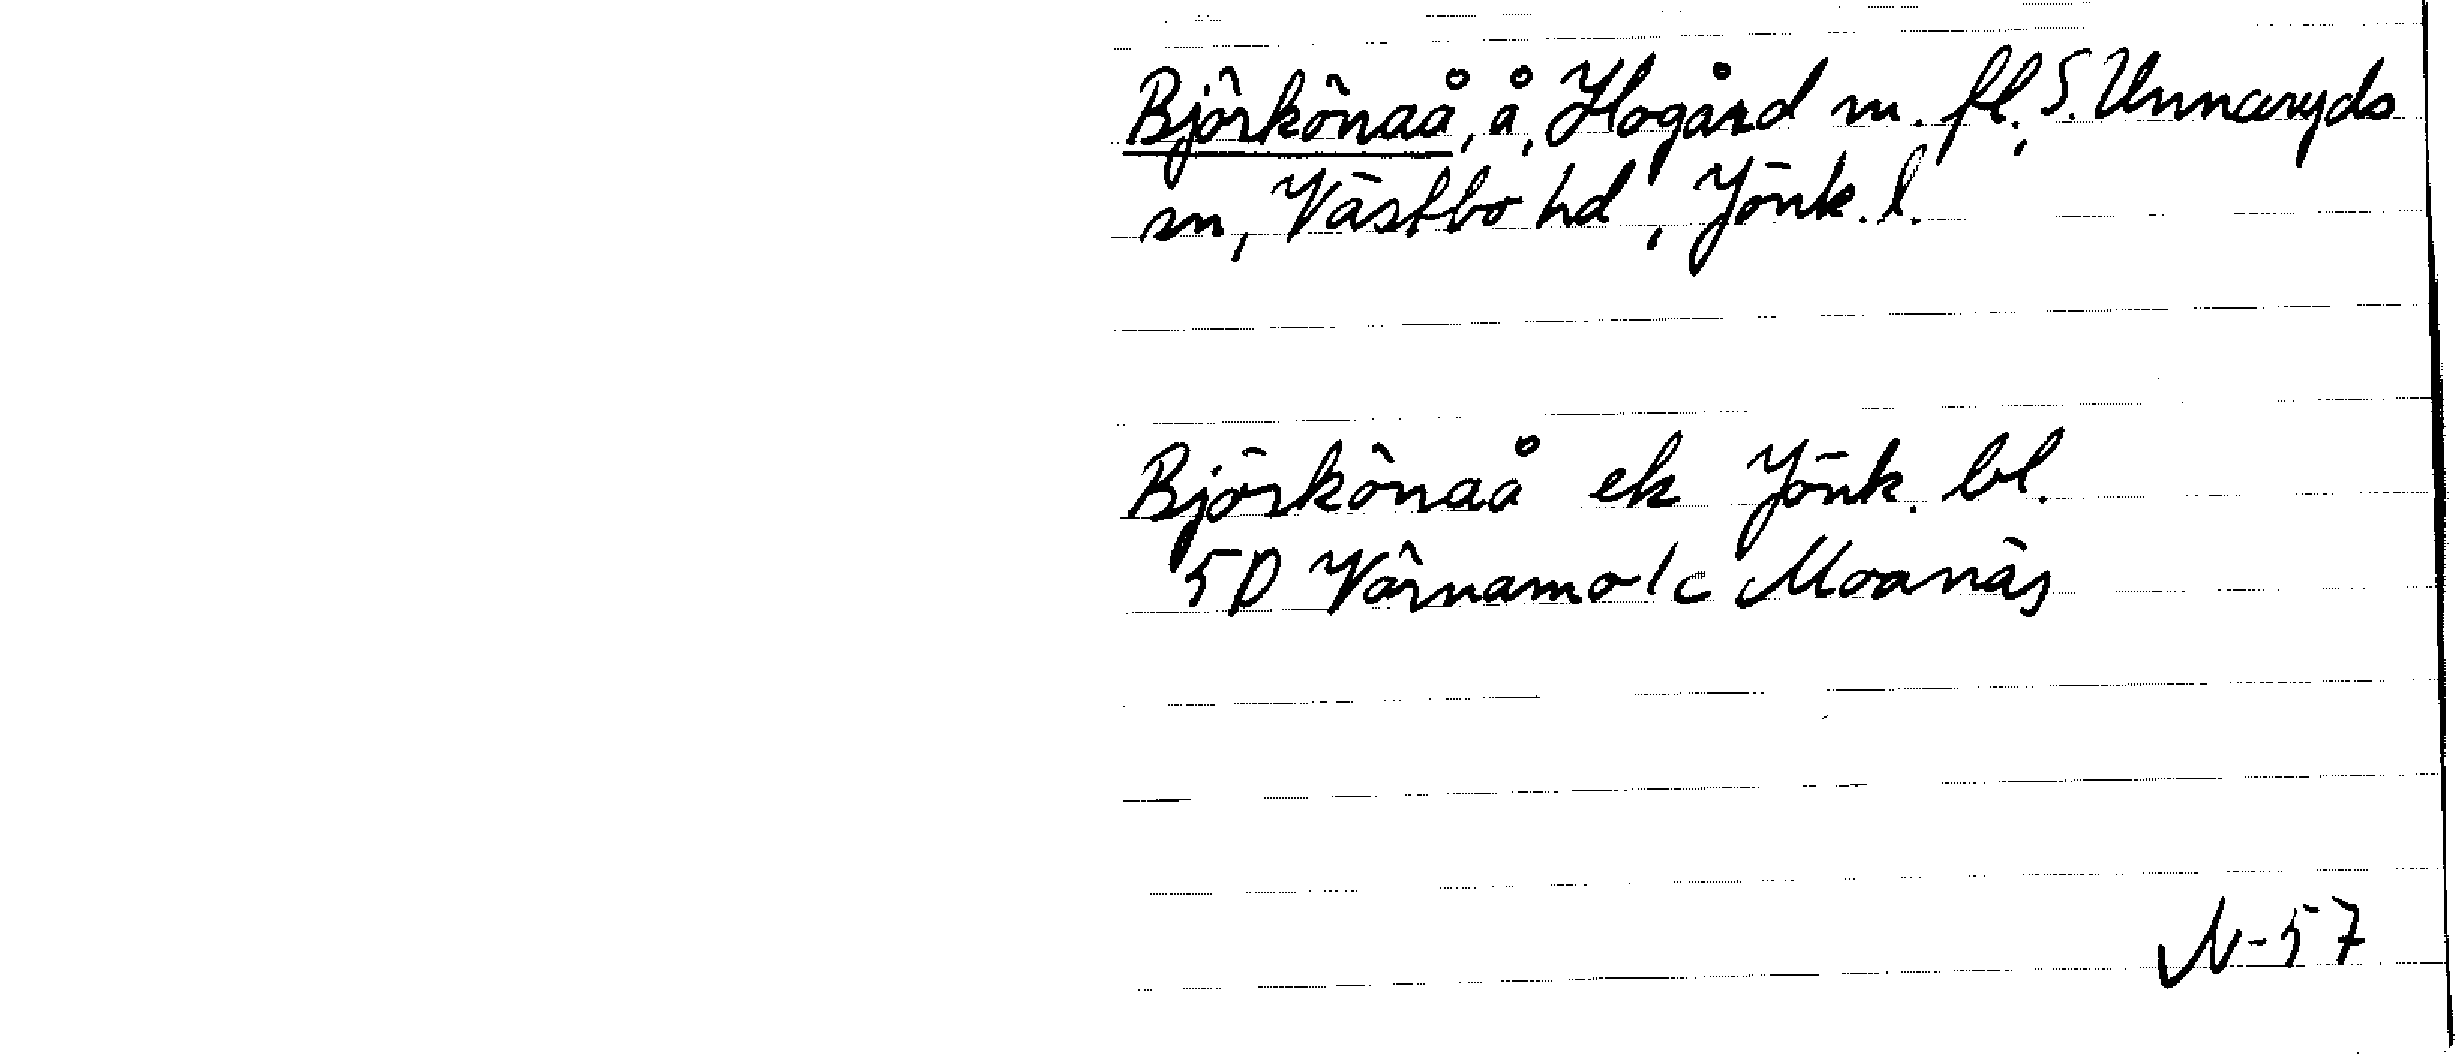 Björkönaå, å, Hogård m. fl., S. Unnaryds
sn, Västbo hd, Jönk. l.
Björkönaå ek Jönk. bl.
5D Värnamo 1c Moanäs
N-57